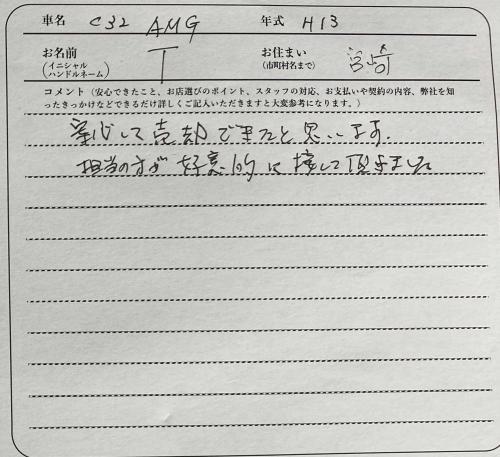 車名 C32 AMG 年式 H13
お名前 (イニシャル ハンドルネーム) T お住まい (市町村名まで) 宮崎
コメント(安心できたこと、お店選びのポイント、スタッフの対応、お支払いや契約の内容、弊社を知
ったきっかけなどできるだけ詳しくご記入いただきますと大変参考になります。)
安心して売却できたと思います。
担当の方が好意的に接して頂きました